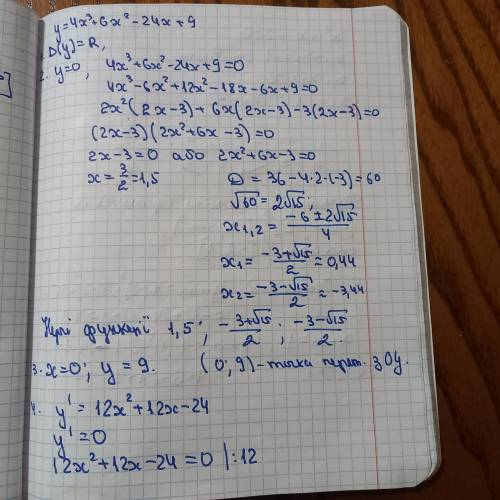 y=4x³+6x²-24x+9
1. D(y)=R,
2. y=0, 4x³+6x²-24x+9=0
4x³-6x²+12x²-18x-6x+9=0
2x²(2x-3)+6x(2x-3)-3(2x-3)=0
(2x-3)(2x²+6x-3)=0
2x-3=0 або 2x²+6x-3=0
x=3/2=1,5 D=36-4·2·(-3)=60
√60=2√15;
x₁,₂=(-6±2√15)/4
x₁=(-3+√15)/2≈0,44
x₂=(-3-√15)/2≈-3,44
Нулі функції 1,5; (-3+√15)/2; (-3-√15)/2.
3. x=0; y=9. (0; 9)-точка перет. з OY.
4. y'=12x²+12x-24
y'=0
12x²+12x-24=0 |:12